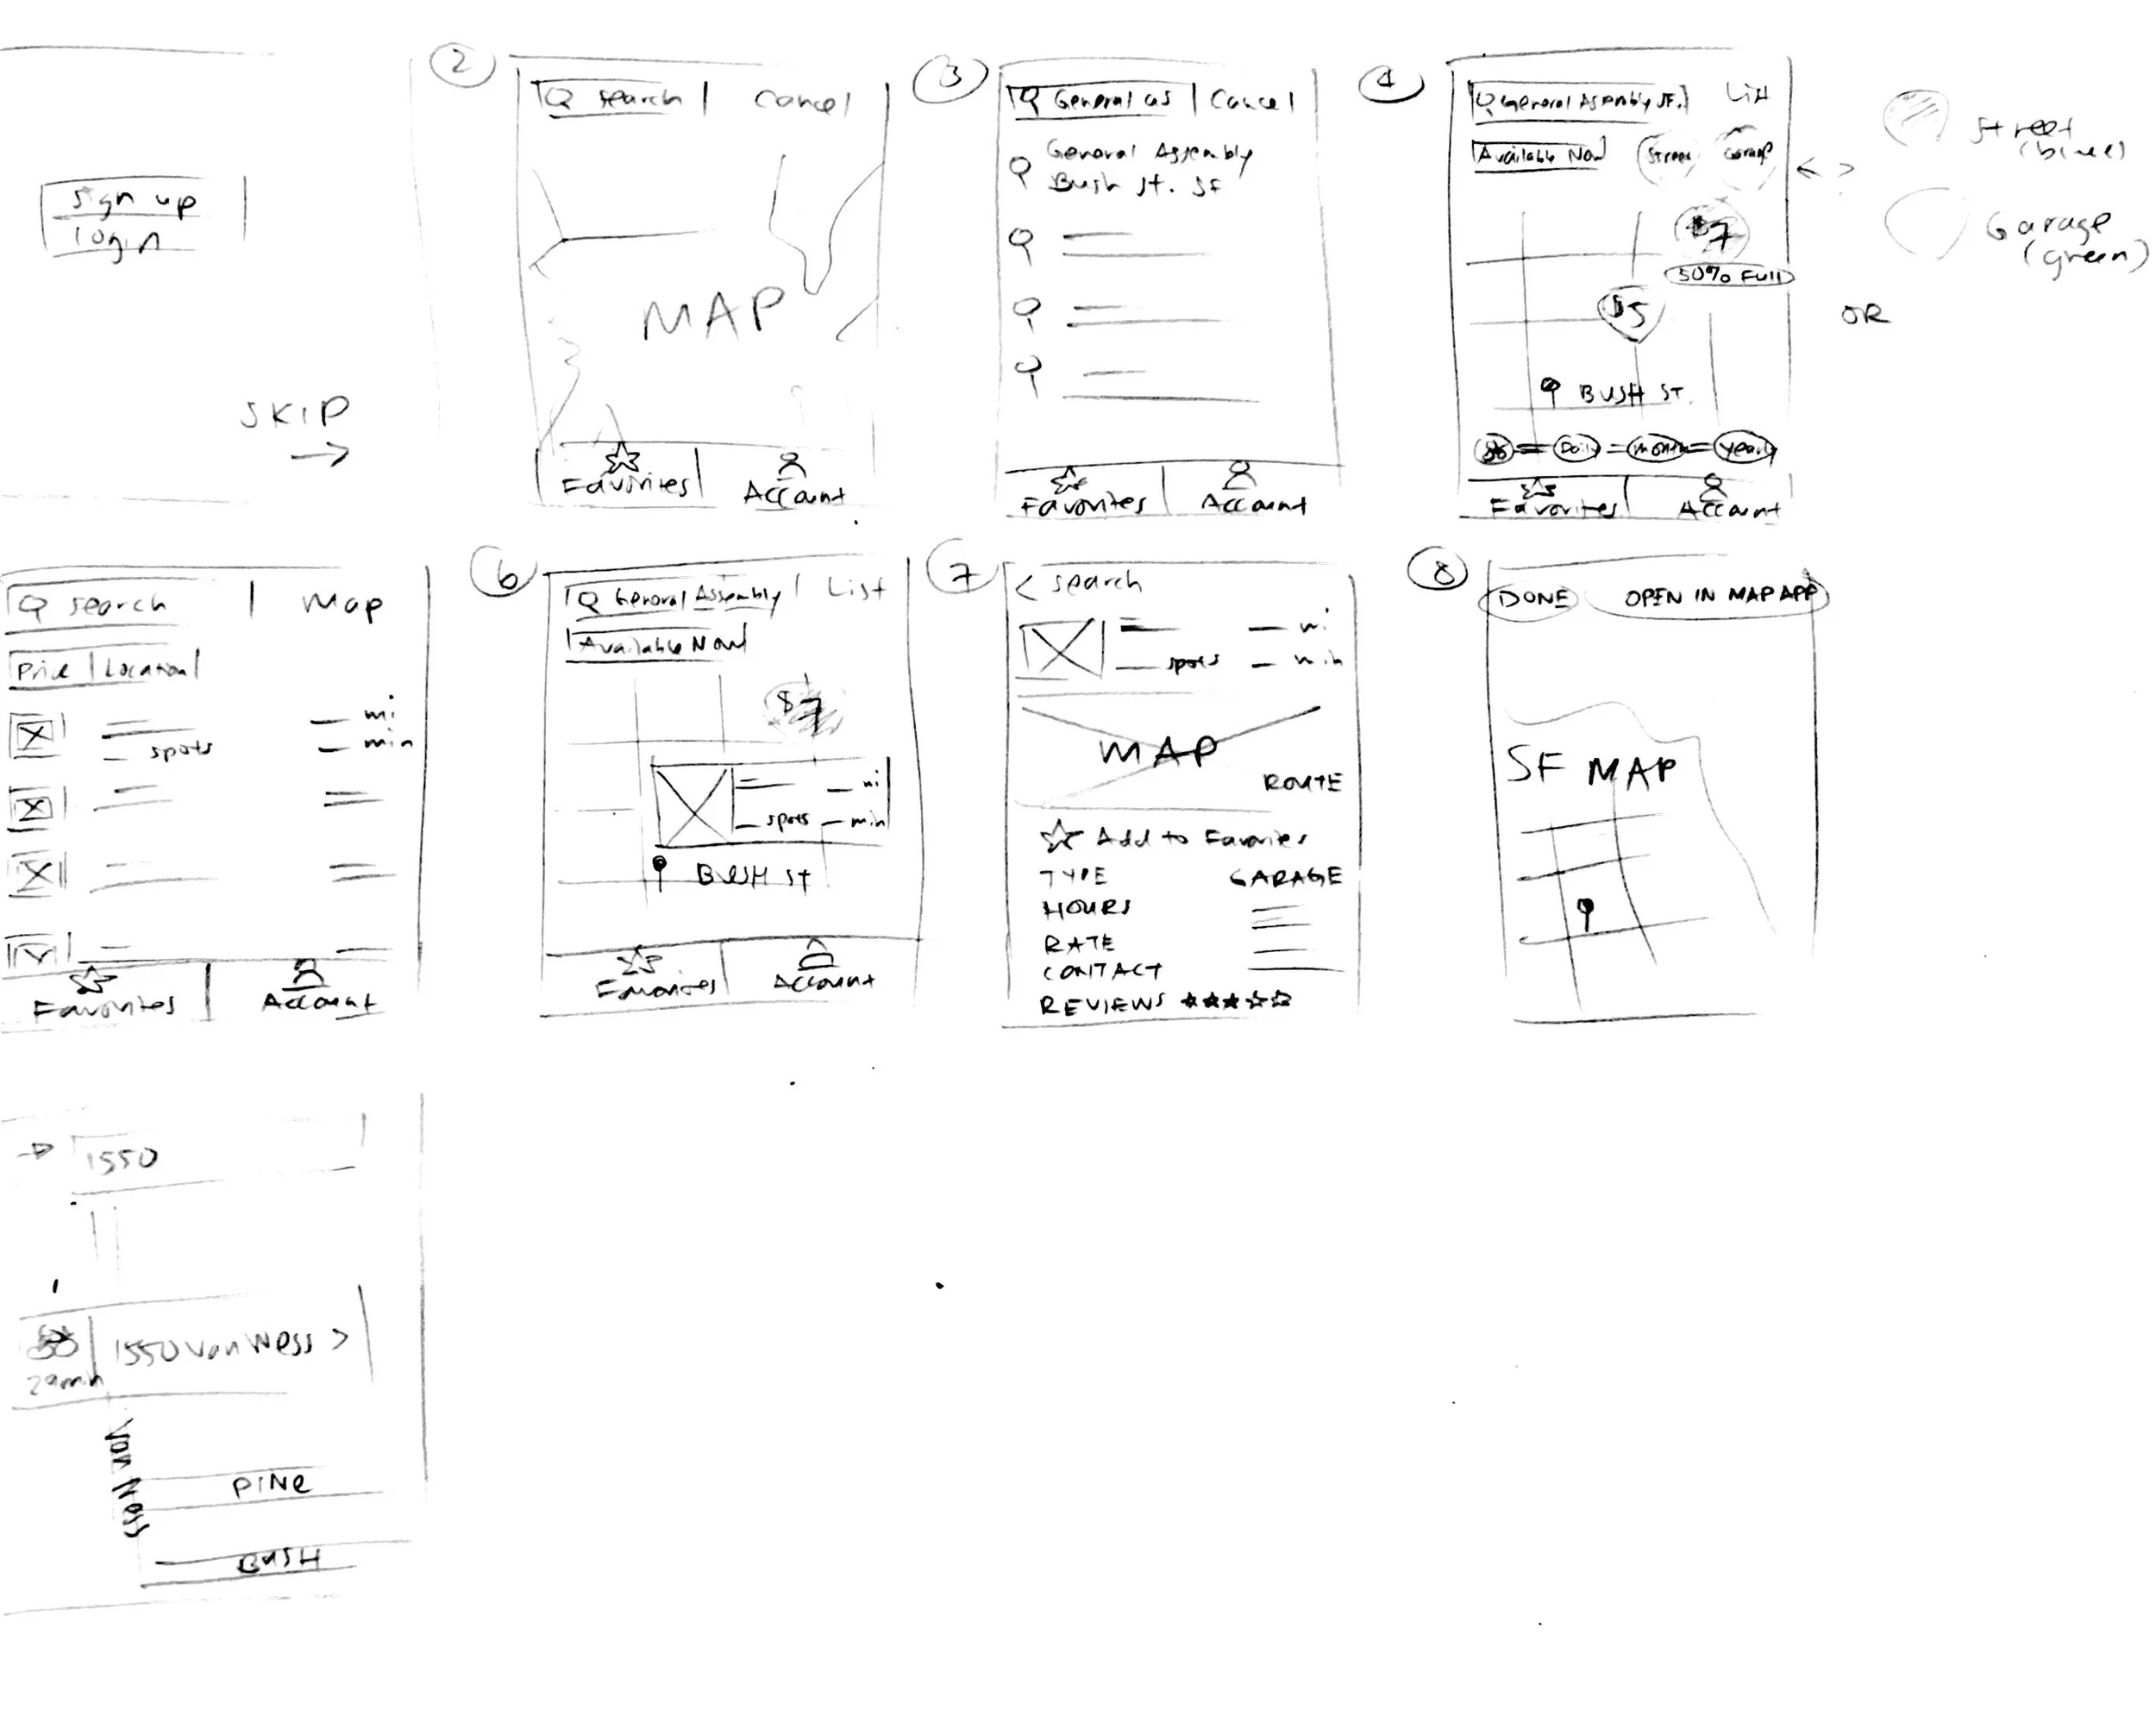 sign up
login
SKIP
2
search
Cancel
MAP
Favorites
Account
3
General as
Cancel
General Assembly
Bush St. SF
Favorites
Account
4
General Assembly SF.
List
Available Now
Street
Garage
$7
50% Full
$5
BUSH ST.
Daily
month
yearly
Favorites
Account
Street
(blue)
Garage
(green)
OR
search
Map
Price
Location
mi
spots
min
Favorites
Account
6
General Assembly
List
Available Now
$7
mi
spots
min
BUSH ST
Favorites
Account
7
< search
mi
spots
min
MAP
ROUTE
Add to Favories
TYPE
GARAGE
HOURS
RATE
CONTACT
REVIEWS
8
DONE
OPEN IN MAP APP
SF MAP
1550
1550 Van Ness >
29mh
Van Ness
PINE
BUSH